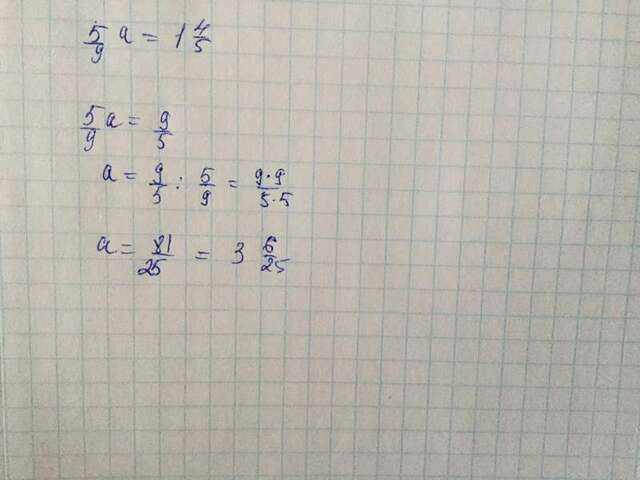 5/9 a = 1 4/5
5/9 a = 9/5
a = 9/5 : 5/9 = 9·9/5·5
a = 81/25 = 3 6/25